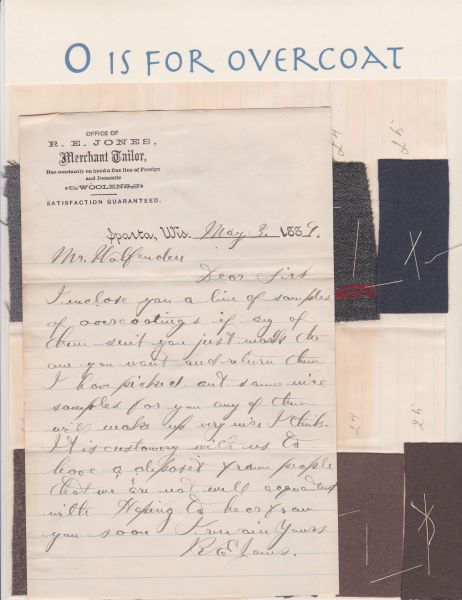 O IS FOR OVERCOAT
OFFICE OF
R. E. JONES,
Merchant Tailor,
Has constantly on hand a fine line of Foreign
and Domestic
WOOLENS.
SATISFACTION GUARANTEED.
Sparta, Wis. May 3, 1887.
Mr Wolfenden
Dear Sir
I inclose you a line of samples
of overcoatings if any of
them suit you just mark the
one you want and return them
I have picked out some nice
samples for you any of them
will make up very nice I think.
It is customary with us to
have a deposit from people
that we are not well acquainted
with Hoping to hear from
you soon I remain Yours
R E Jones.
24
25
24
25